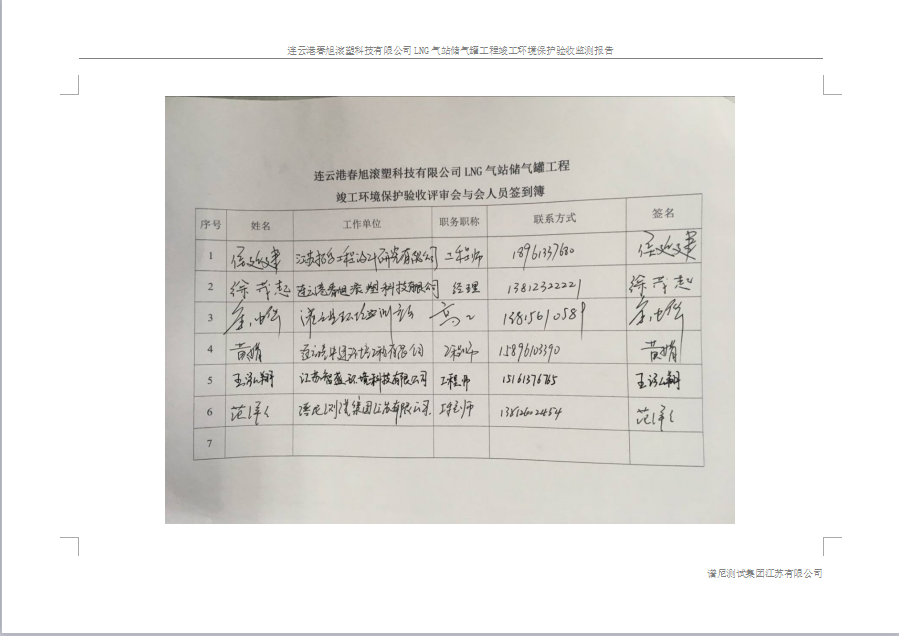 连云港春旭滚塑科技有限公司LNG气站储气罐工程竣工环境保护验收监测报告
连云港春旭滚塑科技有限公司 LNG 气站储气罐工程
竣工环境保护验收评审会与会人员签到簿
序号 姓名 工作单位 职务职称 联系方式 签名
1 工程师 18961337680
2 徐茂起 连云港春旭滚塑科技有限公司 经理 13812322221 徐茂起
3 高工
4 黄 工程师 15896103390 黄
5 王泓翔 江苏智盈环境科技有限公司 工程师 15161376765 王泓翔
6 谱尼测试集团江苏有限公司 工程师
7
谱尼测试集团江苏有限公司